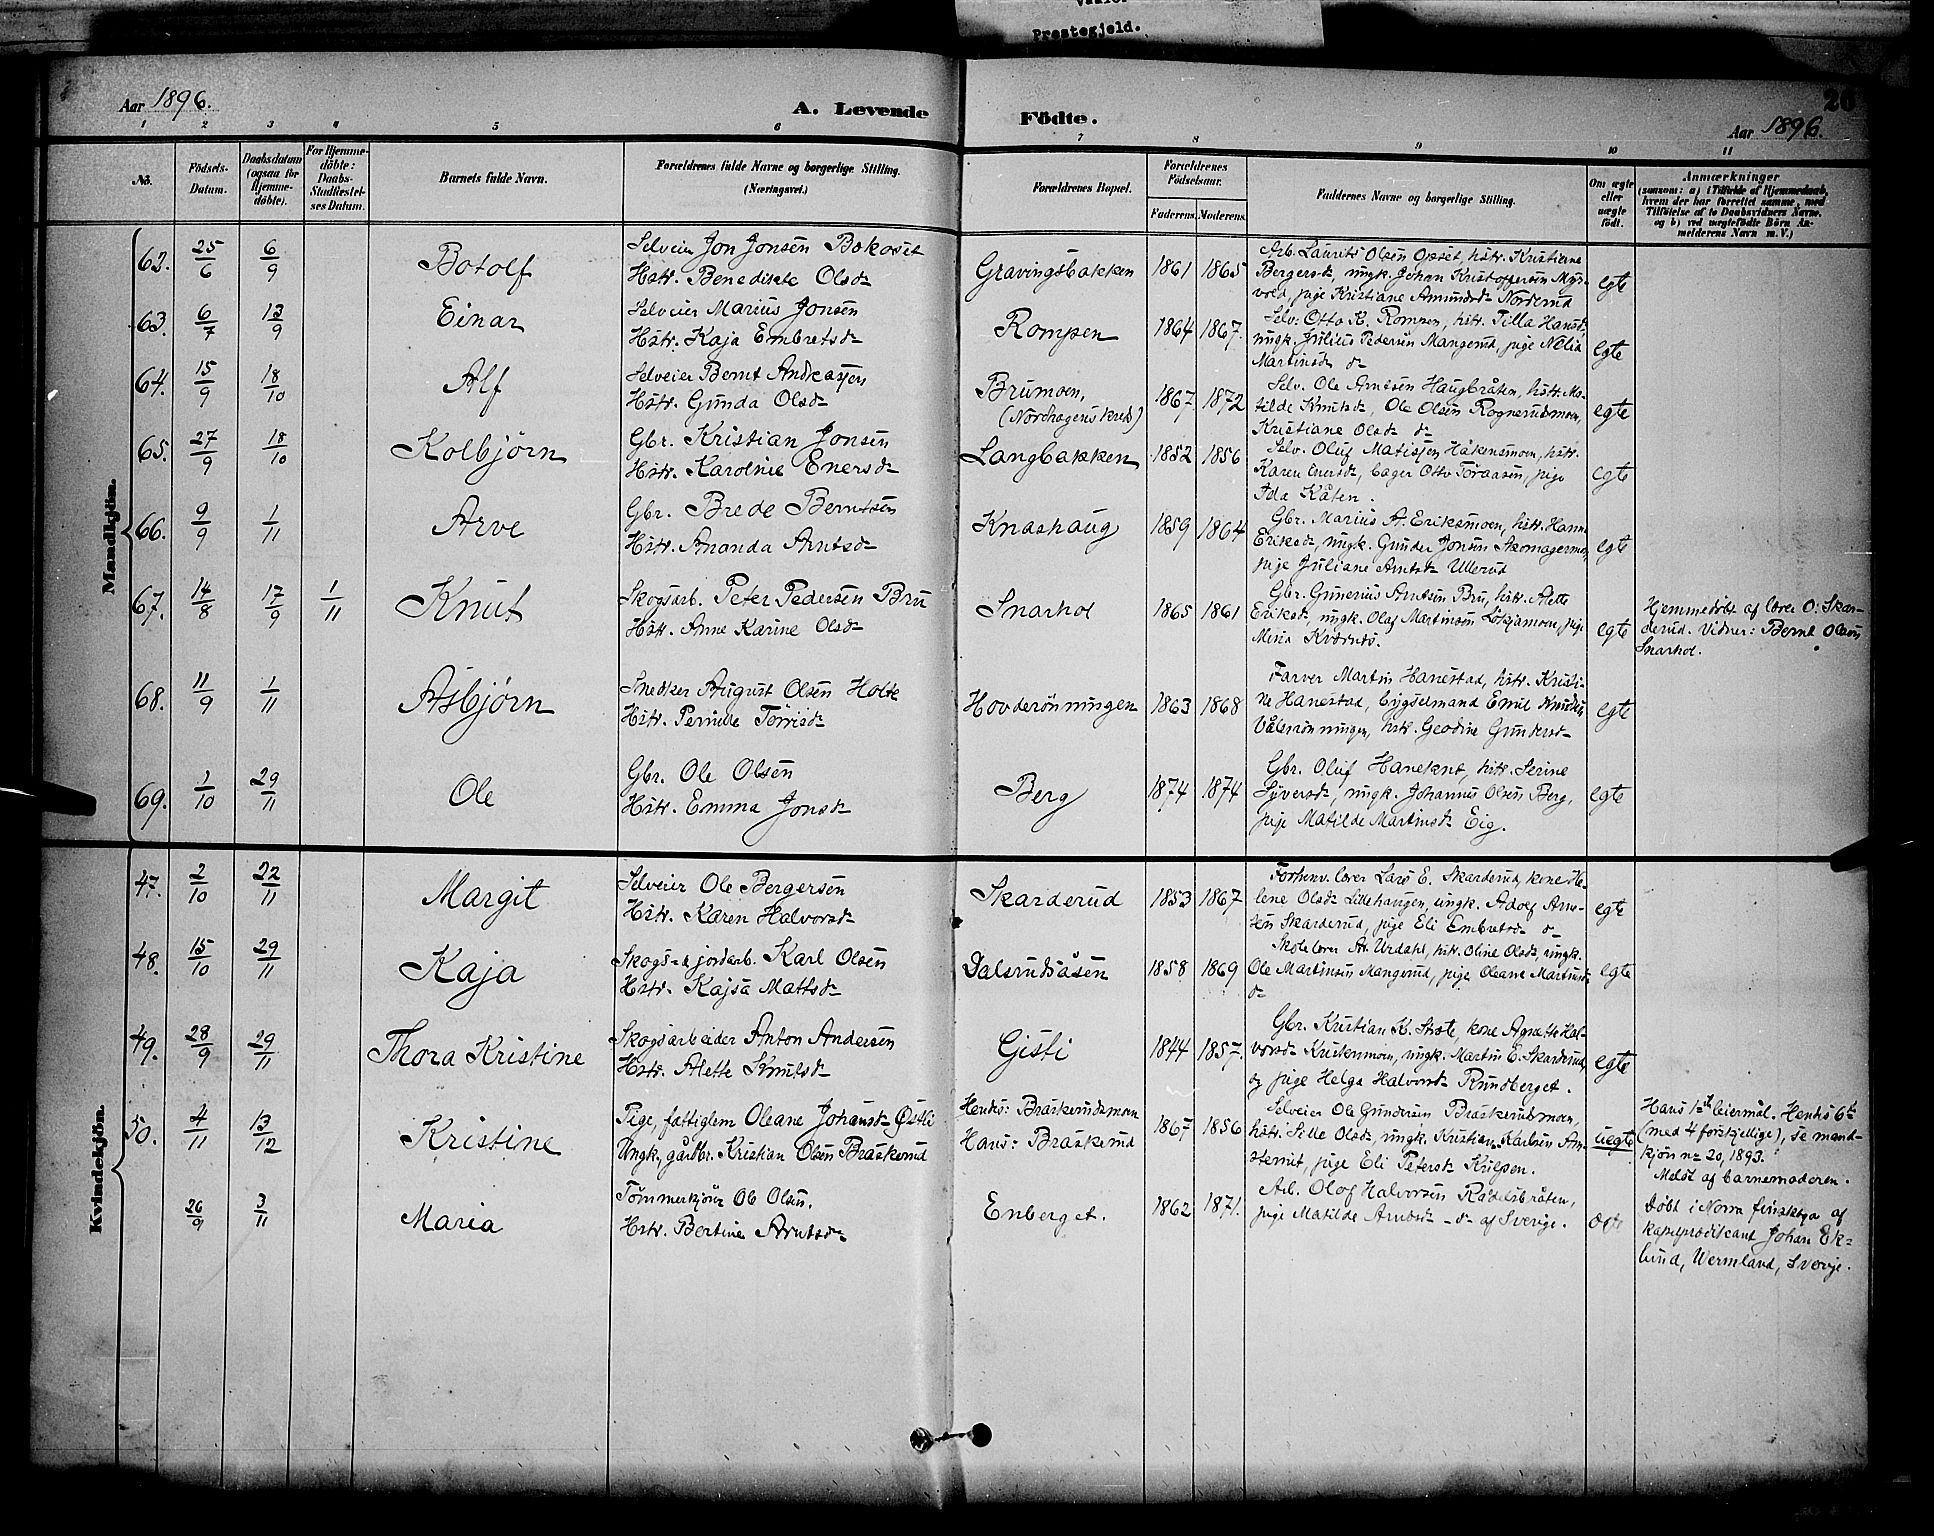 Prestegjeld.
Aar 1896.
A. Levende Födte.
26
Aar 1896.
1 2 3 4 5 6 7 8 9 10 11
No.
Födsels-Datum.
Daabsdatum (ogsaa for Hjemme-döbte).
For Hjemme-döbte: Daabs-Stadfæstel-ses Datum.
Barnets fulde Navn.
Forældrenes fulde Navne og borgerlige Stilling. (Næringsvei.)
Forældrenes Bopæl.
Forældrenes Födselsaar.
Faderens. Moderens.
Faddernes Navne og borgerlige Stilling.
Om ægte eller uægte födt.
Anmærkninger
(saasom: a) i Tilfælde af Hjemmedaab, hvem der har forrettet samme, med Tilföielse af to Daabsvidners Navne. og b) ved uægtefödte Börn Anmelderens Navn m. V.)
Mandkjön.
62. 25/6 6/9 Botolf
Selveier Jon Jonsen Bokoset
Hstr. Benedikte Olsd.
Gravingsbakken 1861 1865
Arb. Laurits Olsen Opset, hstr. Kristiane
Bergersd., ungk. Johan Kristoffersen Myr-
vold, pige Kristiane Amundsd. Norderud
egte
63. 6/7 13/9 Einar
Selveier Marius Jonsen
Hstr. Kaja Embretsd.
Rompen 1864 1867.
Selv. Otto K. Rompen, hstr. Tilla Hansd.,
ungk. Julius Pedersen Mangerud, pige Nelia
Martinsd. d.
egte
64. 15/9 18/10 Alf
Selveier Bernt Andreassen
Hstr. Gunda Olsd.
Brumoen, (Nordhagens kreds) 1867. 1872
Selv. Ole Arnesen Haugbråten, hstr. Ma-
tilde Knutsd., Ole Olsen Rognerudmoen,
Kristiane Olsd. d.
egte
65. 27/9 18/10 Kolbjørn
Gbr. Kristian Jonsen
Hstr. Karoline Enersd.
Langbakken 1852 1856
Selv. Oluf Matisen Håkensmoen, hstr.
Karen Enersd., bager Otto Toraasen, pige
Ida Kåten.
egte
66. 9/9 1/11 Arve
Gbr. Brede Berntsen
Hstr. Ananda Arntsd.
Knashaug 1859 1864
Gbr. Marius A. Eriksmoen, hstr. Hanna
Eriksd., ungk. Gunder Jonsen Skomagermo,
pige Juliane Arntsd. Ullerud
egte
67. 14/8 17/9 1/11 Knut
Skogsarb. Peter Pedersen Bru
Hstr. Anne Karine Olsd.
Snarhol 1865 1861
Gbr. Gunerius Arntsen Bru, hstr. Alette
Eriksd., ungk. Olaf Martinsen Løkjamoen, pige
Mina Kvernes.
egte
Hjemmedøbt af lærer O. Skar-
derud. Vidner: Bernt Olsen
Snarhol.
68. 11/9 1/11 Asbjørn
Snedker August Olsen Holte
Hstr. Pernille Torrisd.
Hovderønningen 1863 1868
Farver Martin Hanestad, hstr. Kristi-
ne Hanestad, bygselmand Emil Knudsen
Vålerønningen, hstr. Geodine Gundersd.
egte
69. 1/10 29/11 Ole
Gbr. Ole Olsen
Hstr. Emma Jonsd.
Berg 1874 1874
Gbr. Oluf Haneknt, hstr. Serine
Syversd., ungk. Johannes Olsen Berg,
pige Matilde Martinsd. Eig.
egte
Kvindekjön.
47. 2/10 22/11 Margit
Selveier Ole Bergersen
Hstr. Karen Halvorsd.
Skarderud 1853 1867
Forhenv. lærer Lars E. Skarderud, kone He-
lene Olsd. Lillehaugen, ungk. Adolf Arne-
sen Skarderud, pige Eli Embretsd. d.
egte
48. 15/10 29/11 Kaja
Skogs- & jordarb. Karl Olsen
Hstr. Kajsa Mattsd.
Dalsrudsåsen 1858 1869
Skolelærer A. Urdahl, hstr. Oline Olsd., ungk.
Ole Martinsen Mangerud, pige Oleane Martinsd.
d.
egte
49. 28/9 29/11 Thora Kristine
Skogsarbeider Anton Andersen
Hstr. Alette Knutsd.
Gisti 1844 1857.
Gbr. Kristian K. Stote, kone Agnette Hal-
vorsd. Kuskenmoen, ungk. Martin E. Skarderud,
og pige Helga Halvorsd. Rundberget.
egte
50. 4/11 13/12 Kristine
Pige, fattiglem Oleane Johansd. Østli
Ungk. gårdbr. Kristian Olsen Braskerud
Hendes: Braskerudmoen
Hans: Braskerud
1867 1856
Selveier Ole Gundersen Braskerudmoen,
hstr. Sille Olsd., ungk. Kristian Karlsen Arn-
sternit, pige Eli Petersd. Kulpen.
uegte
Hans 1ste leiermål. Hendes 6te
(med 4 forskjellige), se mand-
kjøn no 20, 1893.
Meldt af barnemoderen.
26/9 3/11 Maria
Tømmerkjører Ole Olsen.
Hstr. Bertine Arntsd.
Enberget. 1862 1871.
Arb. Olof Halvorsen Rådelsbråten,
pige Matilde Arndsd. -d- af Sverige.
egte
Døbt i Norra finskoga af
kapelpredikant Johan Ek-
lund, Wermland, Sverige.